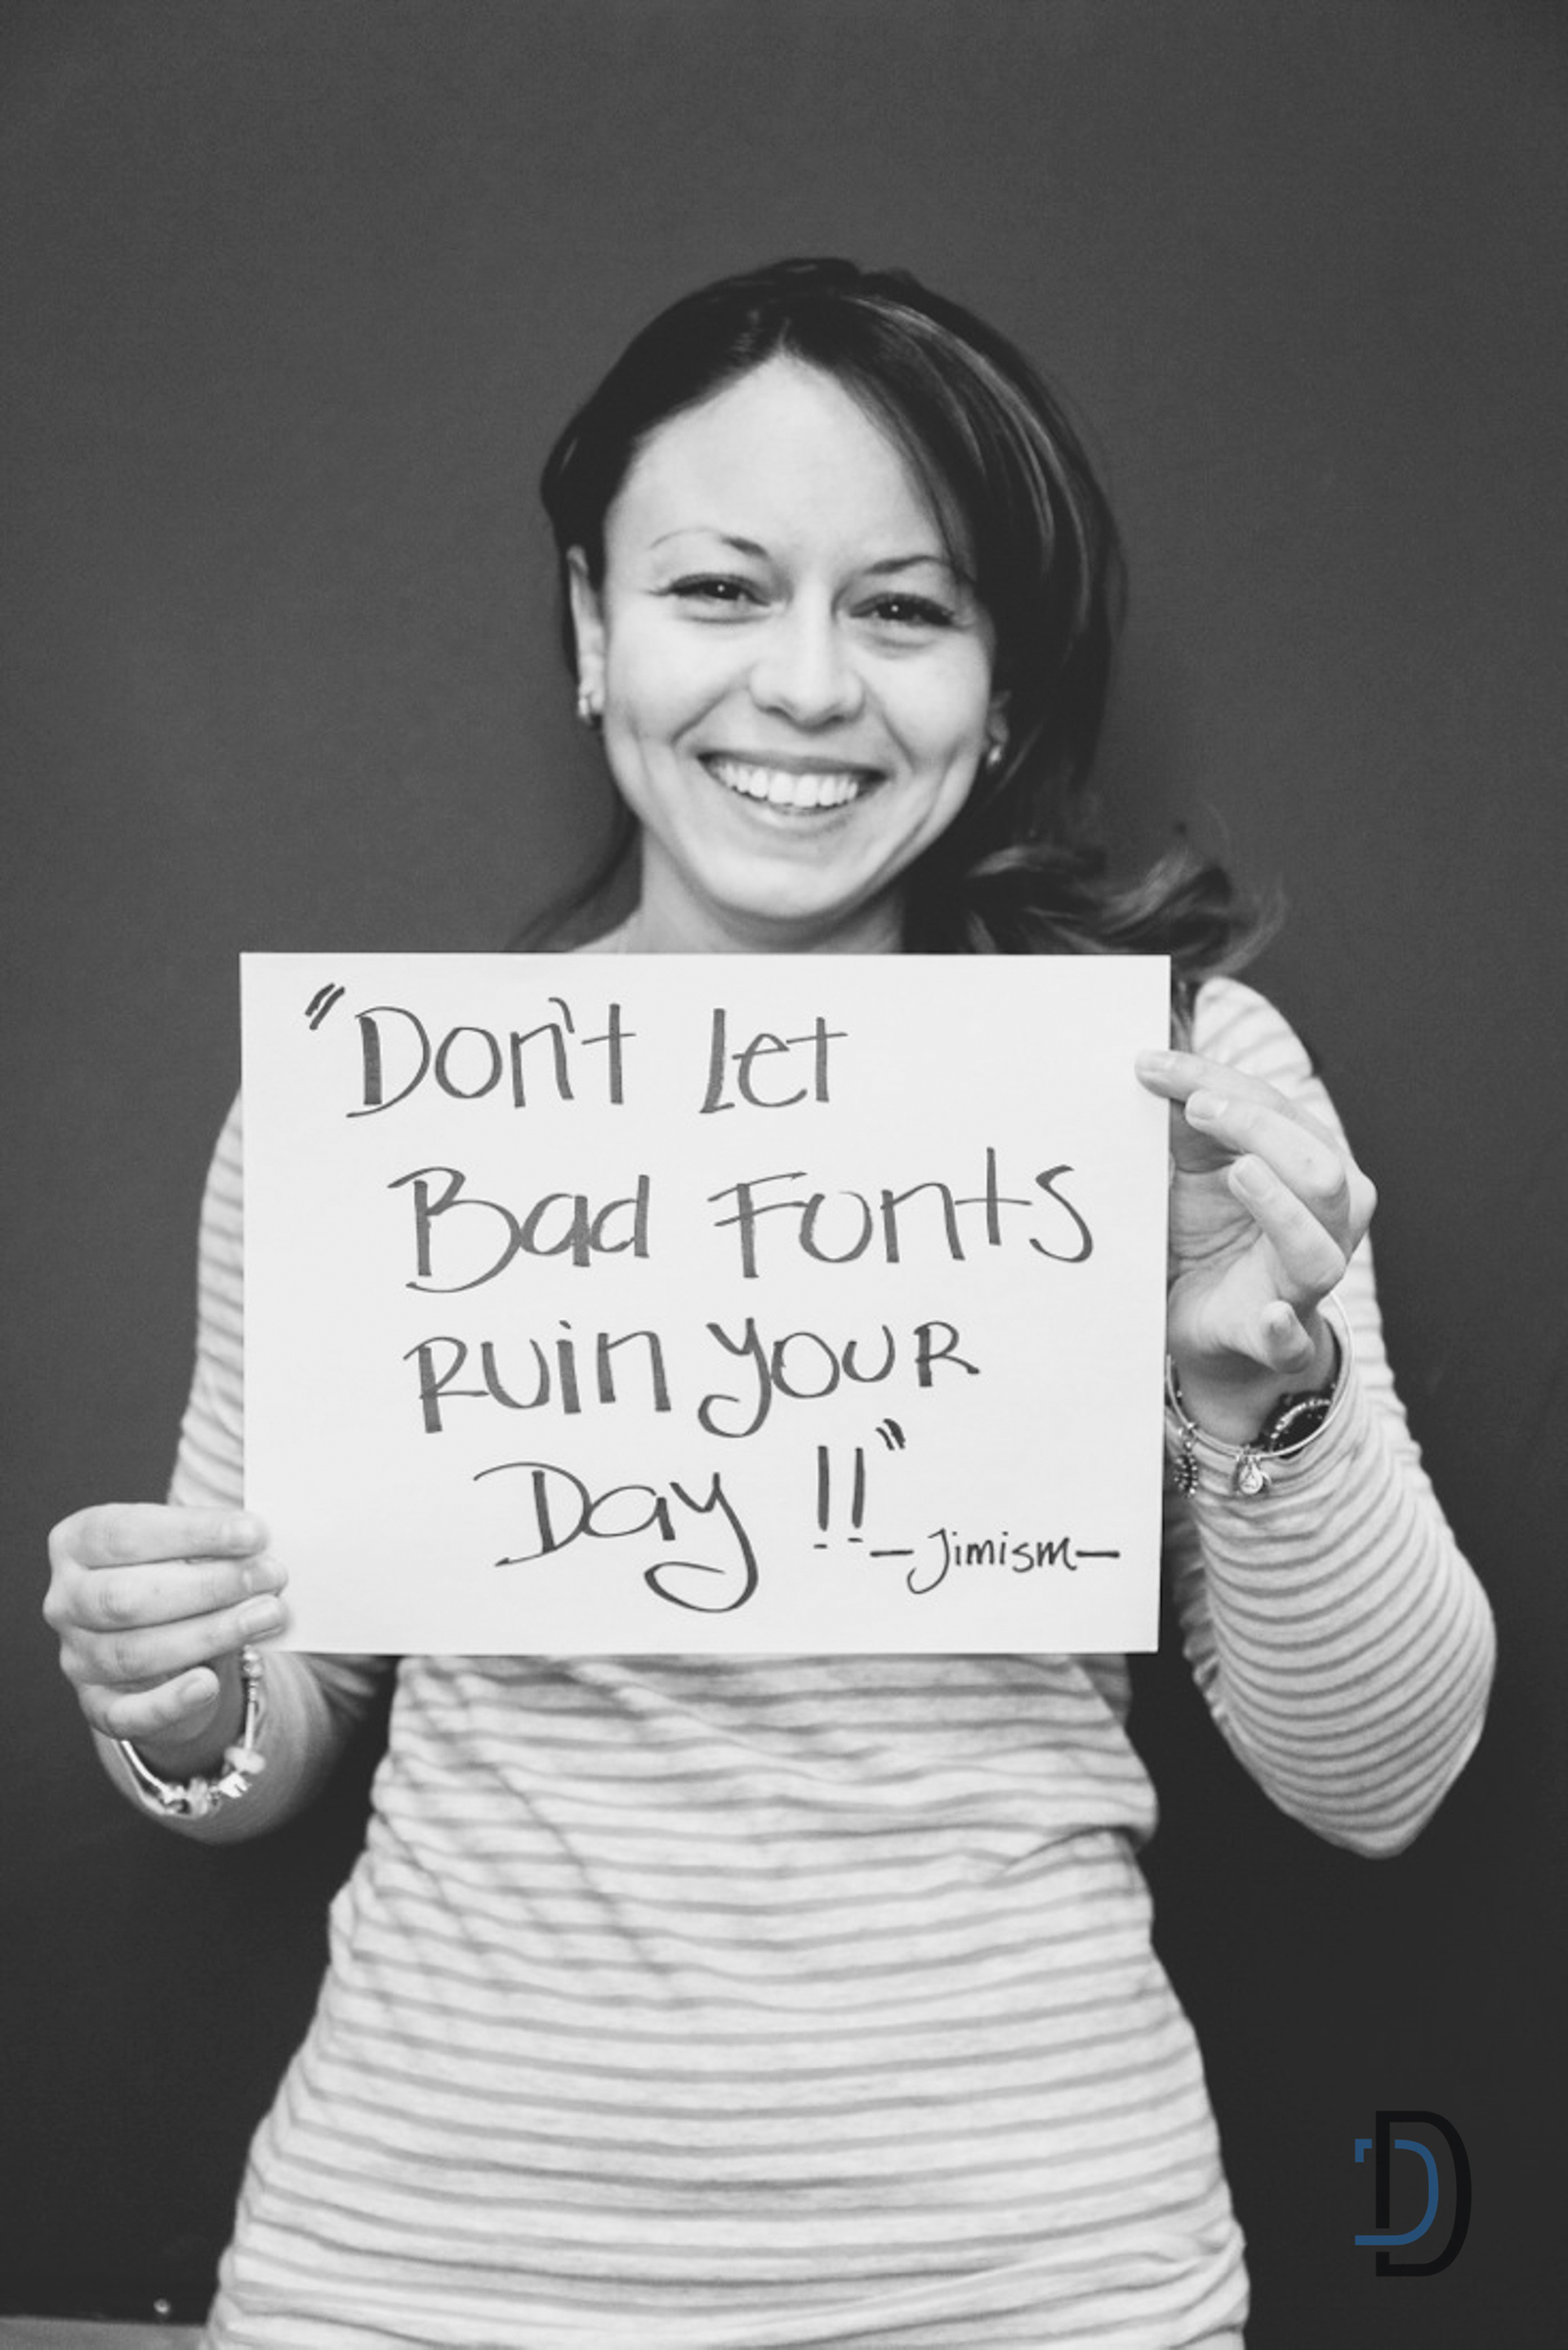 "Don't Let
Bad Fonts
Ruin your
Day !!"
-Jimism-